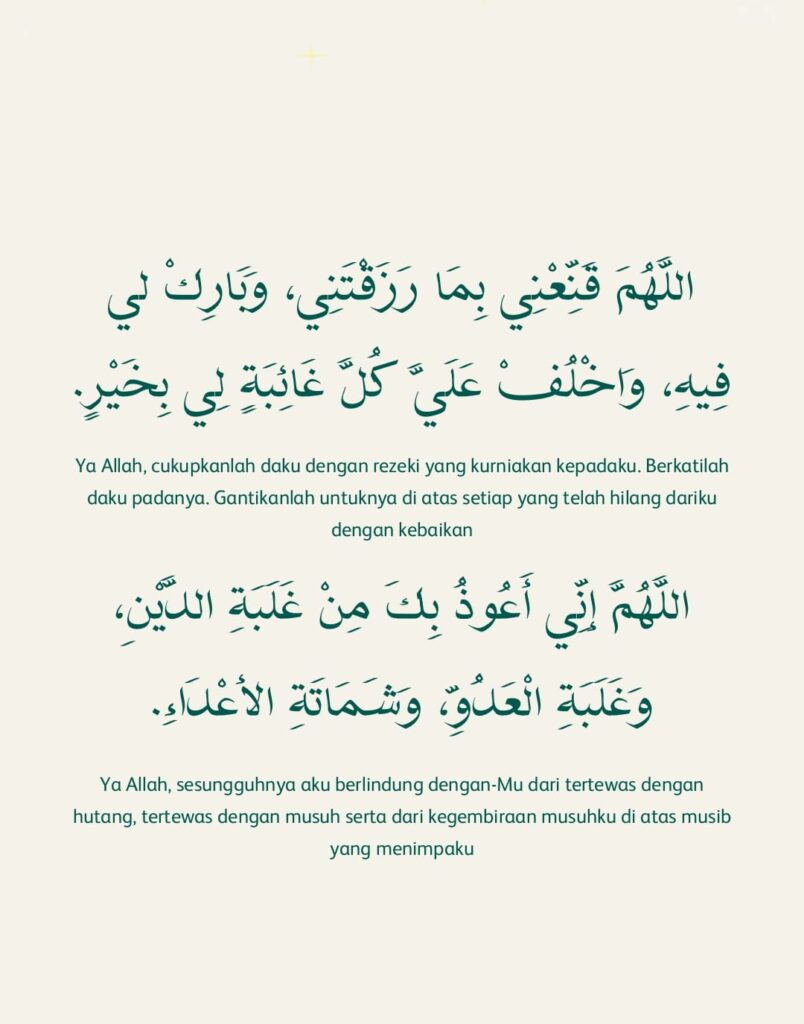 اللَّهُمَ قَنِّعْنِي بِمَا رَزَقْتَنِي، وَبَارِكْ لي
فِيهِ، وَاخْلُفْ عَلَيَّ كُلَّ غَائِبَةٍ لِي بِخَيْرٍ.
Ya Allah, cukupkanlah daku dengan rezeki yang kurniakan kepadaku. Berkatilah
daku padanya. Gantikanlah untuknya di atas setiap yang telah hilang dariku
dengan kebaikan
اللَّهُمَّ إِنِّي أَعُوذُ بِكَ مِنْ غَلَبَةِ الدَّيْنِ،
وَغَلَبَةِ الْعَدُوِّ، وَشَمَاتَةِ الأَعْدَاءِ.
Ya Allah, sesungguhnya aku berlindung dengan-Mu dari tertewas dengan
hutang, tertewas dengan musuh serta dari kegembiraan musuhku di atas musib
yang menimpaku